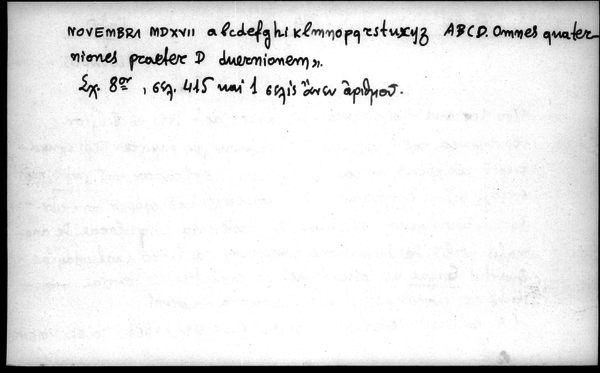 NOVEMBRI MDXVII abcdefghiklmnopqrstuxyz ABCD. Omnes quater-
niones praeter D duernionem».
Σχ. 8ον, σελ. 415 καί 1 σελὶς ἄνευ ἀριθμοῦ.